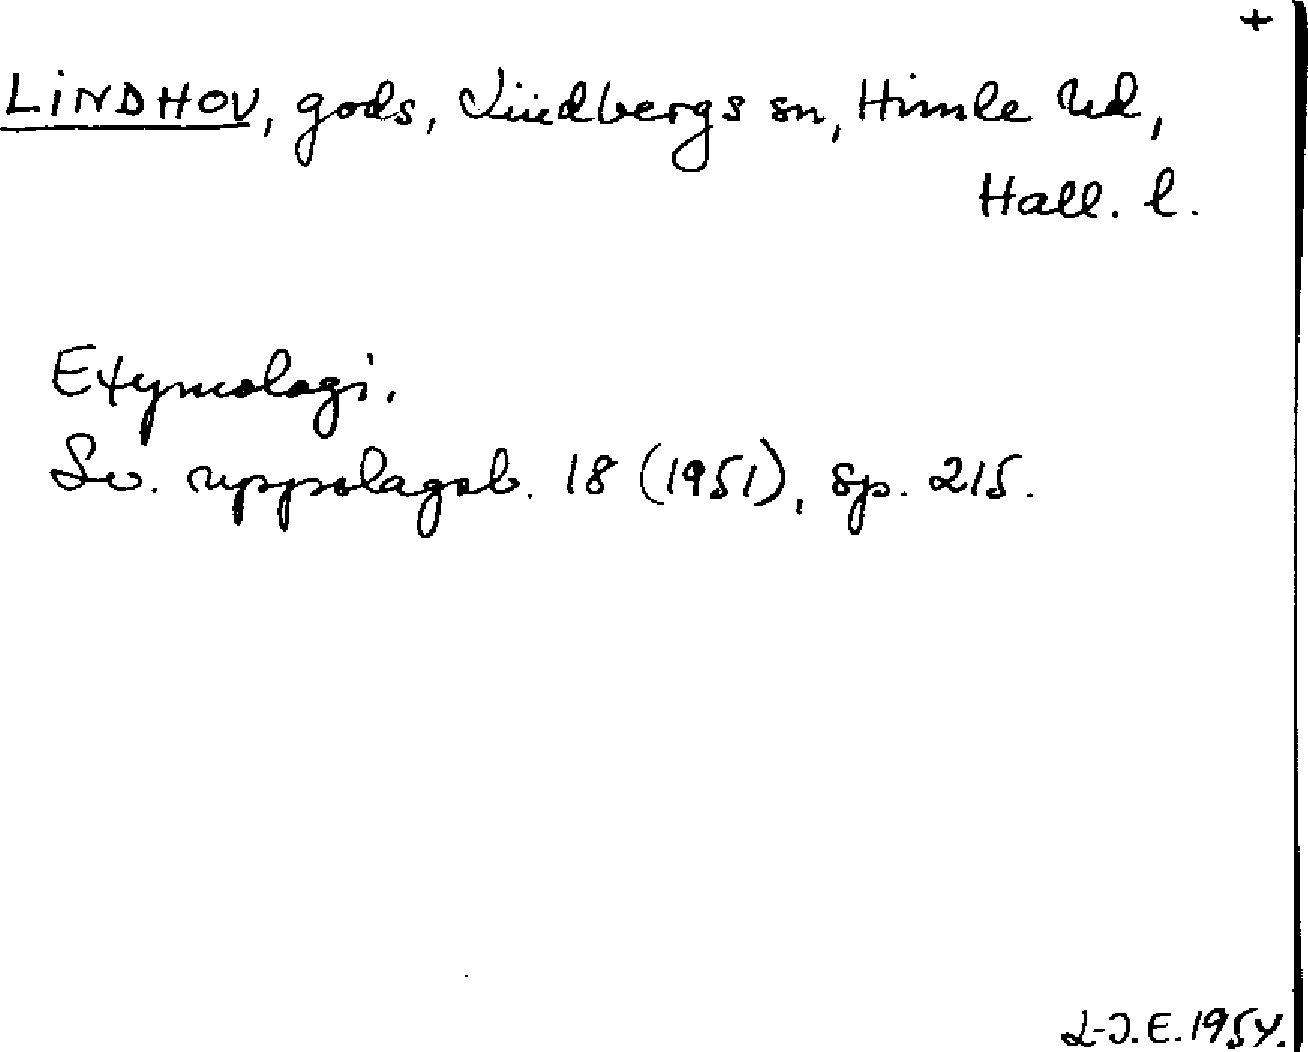 +
LINDHOV, gods, Lindbergs sn, Himle hd,
Hall. l.
Etymologi.
Sv. uppslagsb. 18 (1951), sp. 215.
L-J.E. 1954.